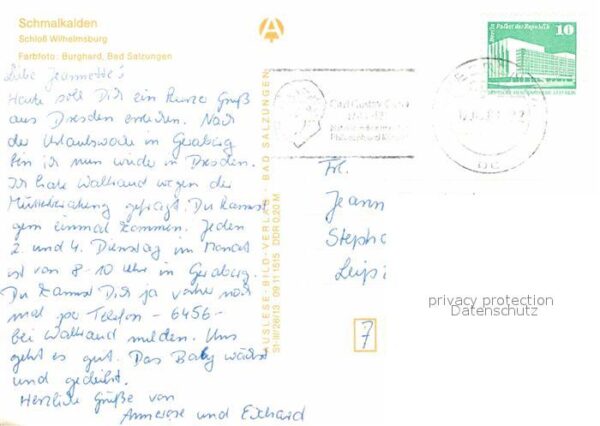 Schmalkalden
Schloß Wilhelmsburg
Farbfoto: Burghard, Bad Salzungen
Liebe Jeannette's
Heute soll Dich ein kurzer Gruß
aus Dresden erreichen. Nach
der Urlaubswoche in Geraberg
bin ich nun wieder in Dresden.
Ich habe Waltraud wegen der
Mütterberatung gefragt. Du kannst
gern einmal kommen. Jeden
2. und 4. Dienstag im Monat
ist von 8-10 Uhr in Geraberg.
Du kannst Dich ja vorher noch
mal per Telefon - 6456 -
bei Waltraud melden. Uns
geht es gut. Das Baby wächst
und gedeiht.
Herzliche Grüße von
Annerose und Eckhard
AUSLESE-BILD-VERLAG · BAD SALZUNGEN
St III/26/13 09 11 1515 DDR 0,20 M
Berlin Palast der Republik
10
Carl Gustav Carus
Fr.
Jeann
Stepha
Leipzi
7
privacy protection
Datenschutz